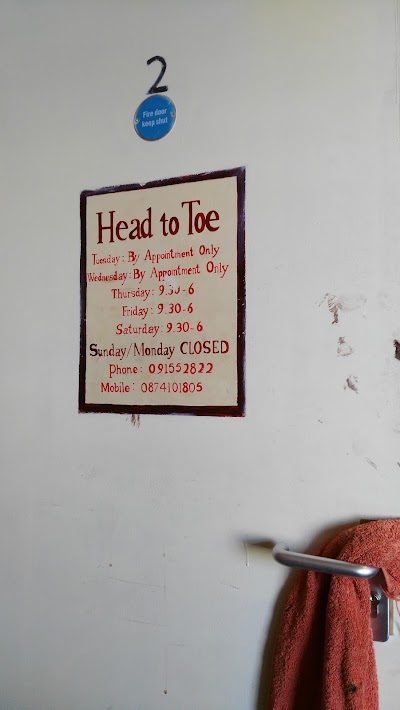 2
Fire door
keep shut
Head to Toe
Tuesday: By Appointment Only
Wednesday: By Appointment Only
Thursday: 9.30-6
Friday: 9.30-6
Saturday: 9.30-6
Sunday/Monday CLOSED
Phone: 091552822
Mobile: 0874101805